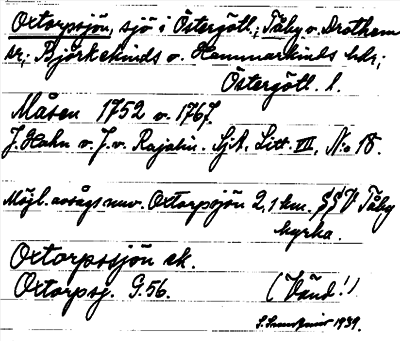 Oxtorpsjön, sjö i Östergötl.; Täby o. Drothem
sr; Björkekinds o. Hammarkinds hdr;
Östergötl. l.
Måsen 1752 o. 1767.
J. Hahn o. J. v. Rajalin. SjA, Litt. VII, N:o 18.
Möjl. avsågs nuv. Oxtorpsjön 2,1 km. SSV Täby
kyrka.
Oxtorpssjön ek.
Oxtorpsj. G. 56.
(Vänd!)
1939.